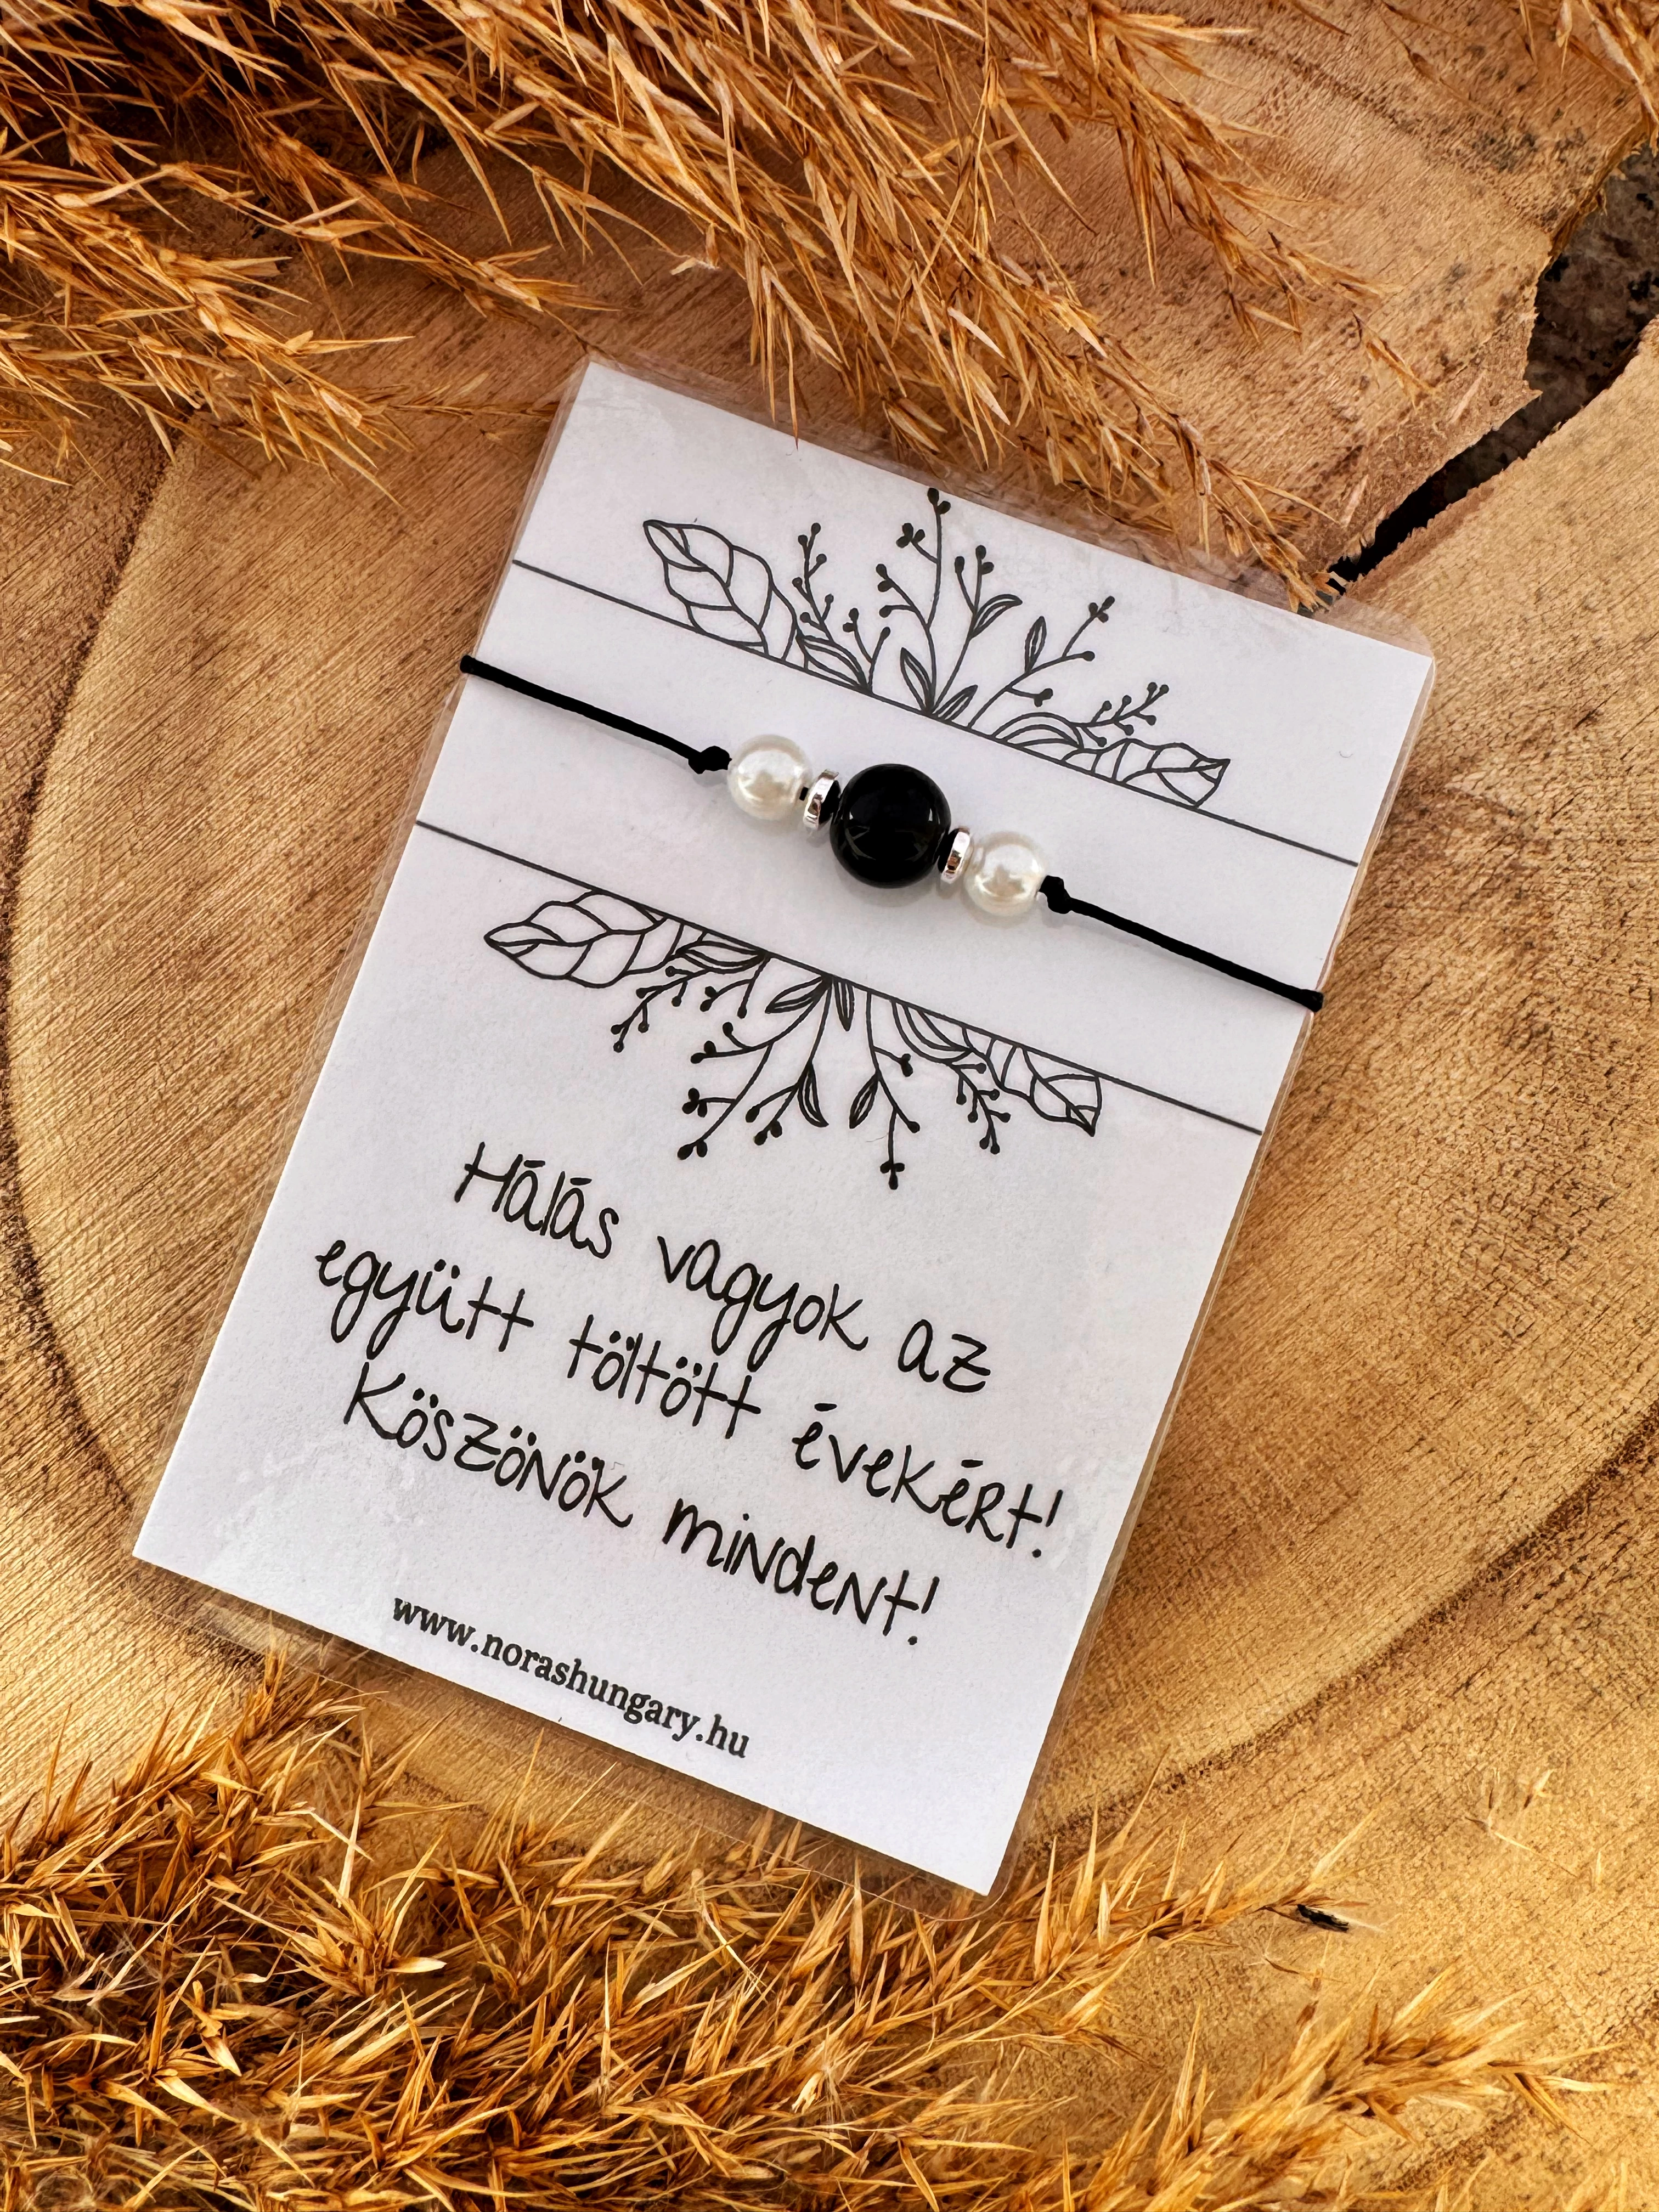 Hálás vagyok az
együtt töltött évekért!
Köszönök mindent!
www.norashungary.hu